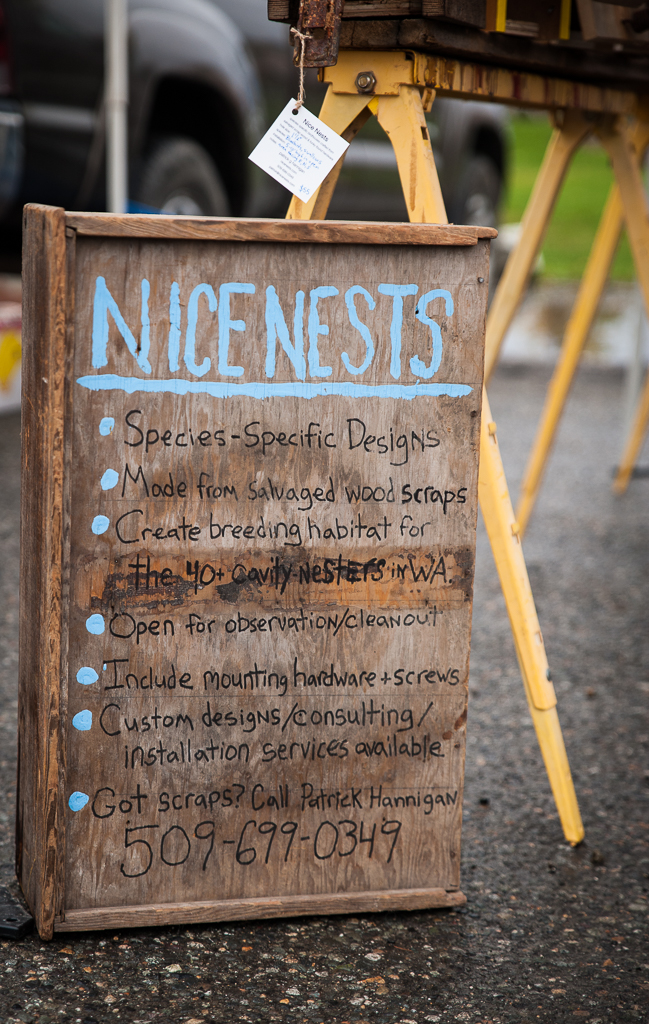 Nice Nests
NICE NESTS
Species-Specific Designs
Made from salvaged wood scraps
Create breeding habitat for
the 40+ cavity-nesters in WA.
Open for observation/cleanout
Include mounting hardware + screws
Custom designs/consulting/
installation services available
Got scraps? Call Patrick Hannigan
509-699-0349